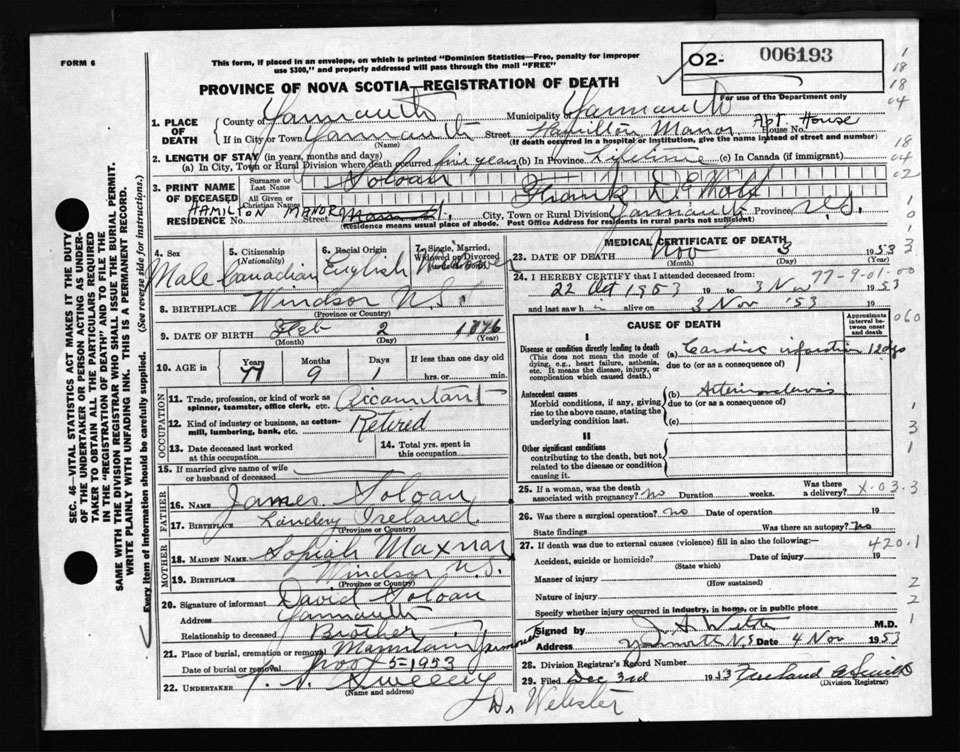 FORM 6
This form, if placed in an envelope, on which is printed "Dominion Statistics—Free, penalty for improper
use $300," and properly addressed will pass through the mail "FREE"
O2- 006193
PROVINCE OF NOVA SCOTIA—REGISTRATION OF DEATH
For use of the Department only
1. PLACE OF DEATH
County of Yarmouth Municipality of Yarmouth
If in City or Town Yarmouth Street Hamilton Manor House No. Apt. House
(Name) (If death occurred in a hospital or institution, give the name instead of street and number)
2. LENGTH OF STAY (in years, months and days)
(a) In City, Town or Rural Division where death occurred five years (b) In Province Lifetime (c) In Canada (if immigrant)
3. PRINT NAME OF DECEASED
Surname or Last Name Soloan
All Given or Christian Names Frank DeWolf
RESIDENCE No. HAMILTON MANOR Street Main St. City, Town or Rural Division Yarmouth Province N.S.
(Residence means usual place of abode. Post Office Address for residents in rural parts not sufficient)
4. Sex Male
5. Citizenship (Nationality) Canadian
6. Racial Origin English
7. Single, Married, Widowed or Divorced
8. BIRTHPLACE Windsor N.S.
(Province or Country)
9. DATE OF BIRTH Feb 2 1876
(Month) (Day) (Year)
10. AGE in Years Months Days If less than one day old
77 9 1 hrs. or min.
OCCUPATION
11. Trade, profession, or kind of work as spinner, teamster, office clerk, etc. Accountant
12. Kind of industry or business, as cotton-mill, lumbering, bank, etc. Retired
13. Date deceased last worked at this occupation
14. Total yrs. spent in this occupation
15. If married give name of wife or husband of deceased
FATHER
16. NAME James Soloan
17. BIRTHPLACE Londery Ireland
(Province or Country)
MOTHER
18. MAIDEN NAME Sophiah Maxnar
19. BIRTHPLACE Windsor N.S.
(Province or Country)
20. Signature of informant David Soloan
Address Yarmouth
Relationship to deceased Brother
21. Place of burial, cremation or removal Mountain Yarmouth
Date of burial or removal Nov 5-1953
22. UNDERTAKER Sweeny
(Name and address)
Dr Webster
MEDICAL CERTIFICATE OF DEATH
23. DATE OF DEATH Nov 3 1953
(Month) (Day)
24. I HEREBY CERTIFY that I attended deceased from:
77-9-01-00
22 Oct 1953 to 3 Nov 1953
and last saw h alive on 3 Nov '53 19
CAUSE OF DEATH
Approximate interval between onset and death
060
I
Disease or condition directly leading to death
(This does not mean the mode of dying, e.g., heart failure, asthenia, etc. It means the disease, injury, or complication which caused death.)
(a) Cardiac infarction 12 dys
due to (or as a consequence of)
Antecedent causes
Morbid conditions, if any, giving rise to the above cause, stating the underlying condition last.
(b) Arteriosclerosis
due to (or as a consequence of)
(c)
II
Other significant conditions
contributing to the death, but not related to the disease or condition causing it.
25. If a woman, was the death associated with pregnancy? no Duration weeks. Was there a delivery?
X-03.3
26. Was there a surgical operation? no Date of operation 19
State findings Was there an autopsy? no
27. If death was due to external causes (violence) fill in also the following:—
420.1
Accident, suicide or homicide? Date of injury 19
(State which)
Manner of injury
(How sustained)
Nature of injury
Specify whether injury occurred in industry, in home, or in public place
Signed by M.D.
Address Yarmouth N.S. Date 4 Nov 1953
28. Division Registrar's Record Number
29. Filed Dec 3rd 1953
(Division Registrar)
SEC. 46—VITAL STATISTICS ACT MAKES IT THE DUTY
OF THE UNDERTAKER OR PERSON ACTING AS UNDER-
TAKER TO OBTAIN ALL THE PARTICULARS REQUIRED
IN THE "REGISTRATION OF DEATH" AND TO FILE THE
SAME WITH THE DIVISION REGISTRAR WHO SHALL ISSUE THE BURIAL PERMIT.
WRITE PLAINLY WITH UNFADING INK. THIS IS A PERMANENT RECORD.
Every item of information should be carefully supplied. (See reverse side for instructions.)